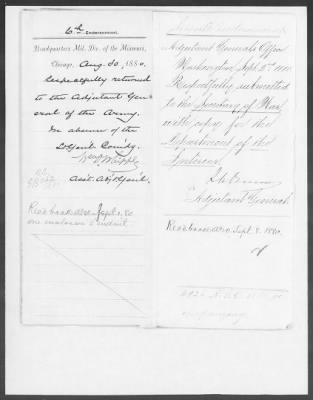 6th Endorsement.
Headquarters Mil. Div. of the Missouri,
Chicago, Aug. 30, 1880.
Respectfully returned
to the Adjutant Gen-
eral of the Army.
In absence of the
Lt. Genl. Comdg.
Whipple
Asst. Adjt Gen'l.
Rec'd back A.G.O. Sept. 1, 80.
one enclosure
Adjutant General's Office
Washington, Sept. 2nd 1880
Respectfully submitted
to the Secretary of War
with copy for the
Department of the
Interior.
Adjutant General
Rec'd back A.G.O. Sept. 8, 1880.